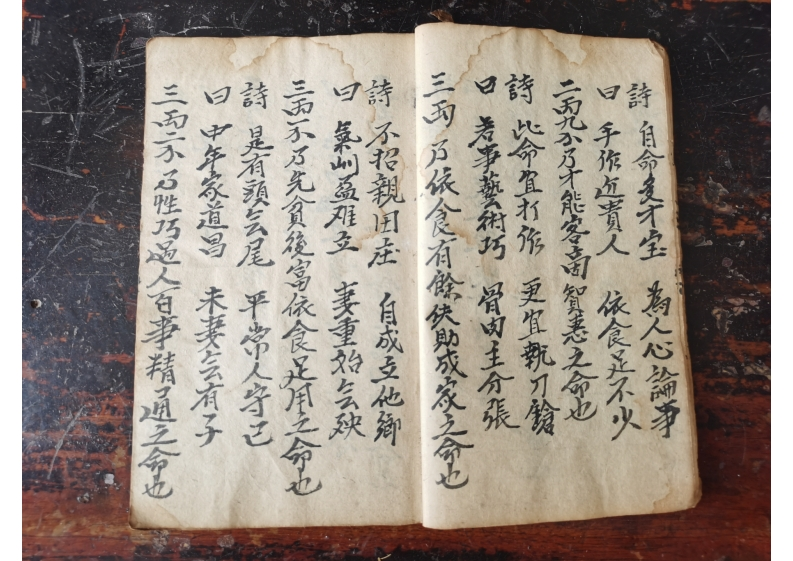 詩 自命多才宝 為人心論事
曰 手作近貴人 依食足不少
二両九分乃才能客商智恵之命也
詩 此命宜打作 更宜執刀鎗
曰 若事藝術巧 骨肉主分張
三両 乃依食有餘伕助成家之命也
詩 不招親田庄 自成立他鄉
曰 氣屾盈难立 妻重始会殃
三両一分乃先貧後富依食足用之命也
詩 是有頭会尾 平常人守己
曰 中年家道昌 未妻会有子
三両二分乃性巧過人百事精通之命也